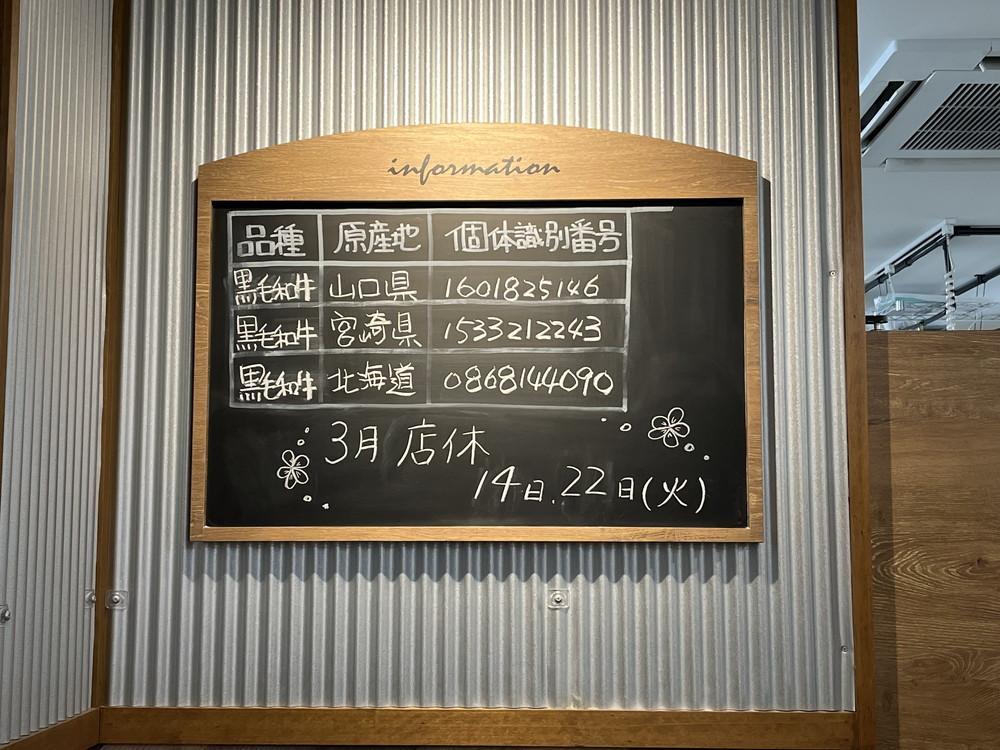 information
品種 原産地 個体識別番号
黒毛和牛 山口県 1601825146
黒毛和牛 宮崎県 1533212243
黒毛和牛 北海道 0868144090
3月 店休
14日.22日(火)